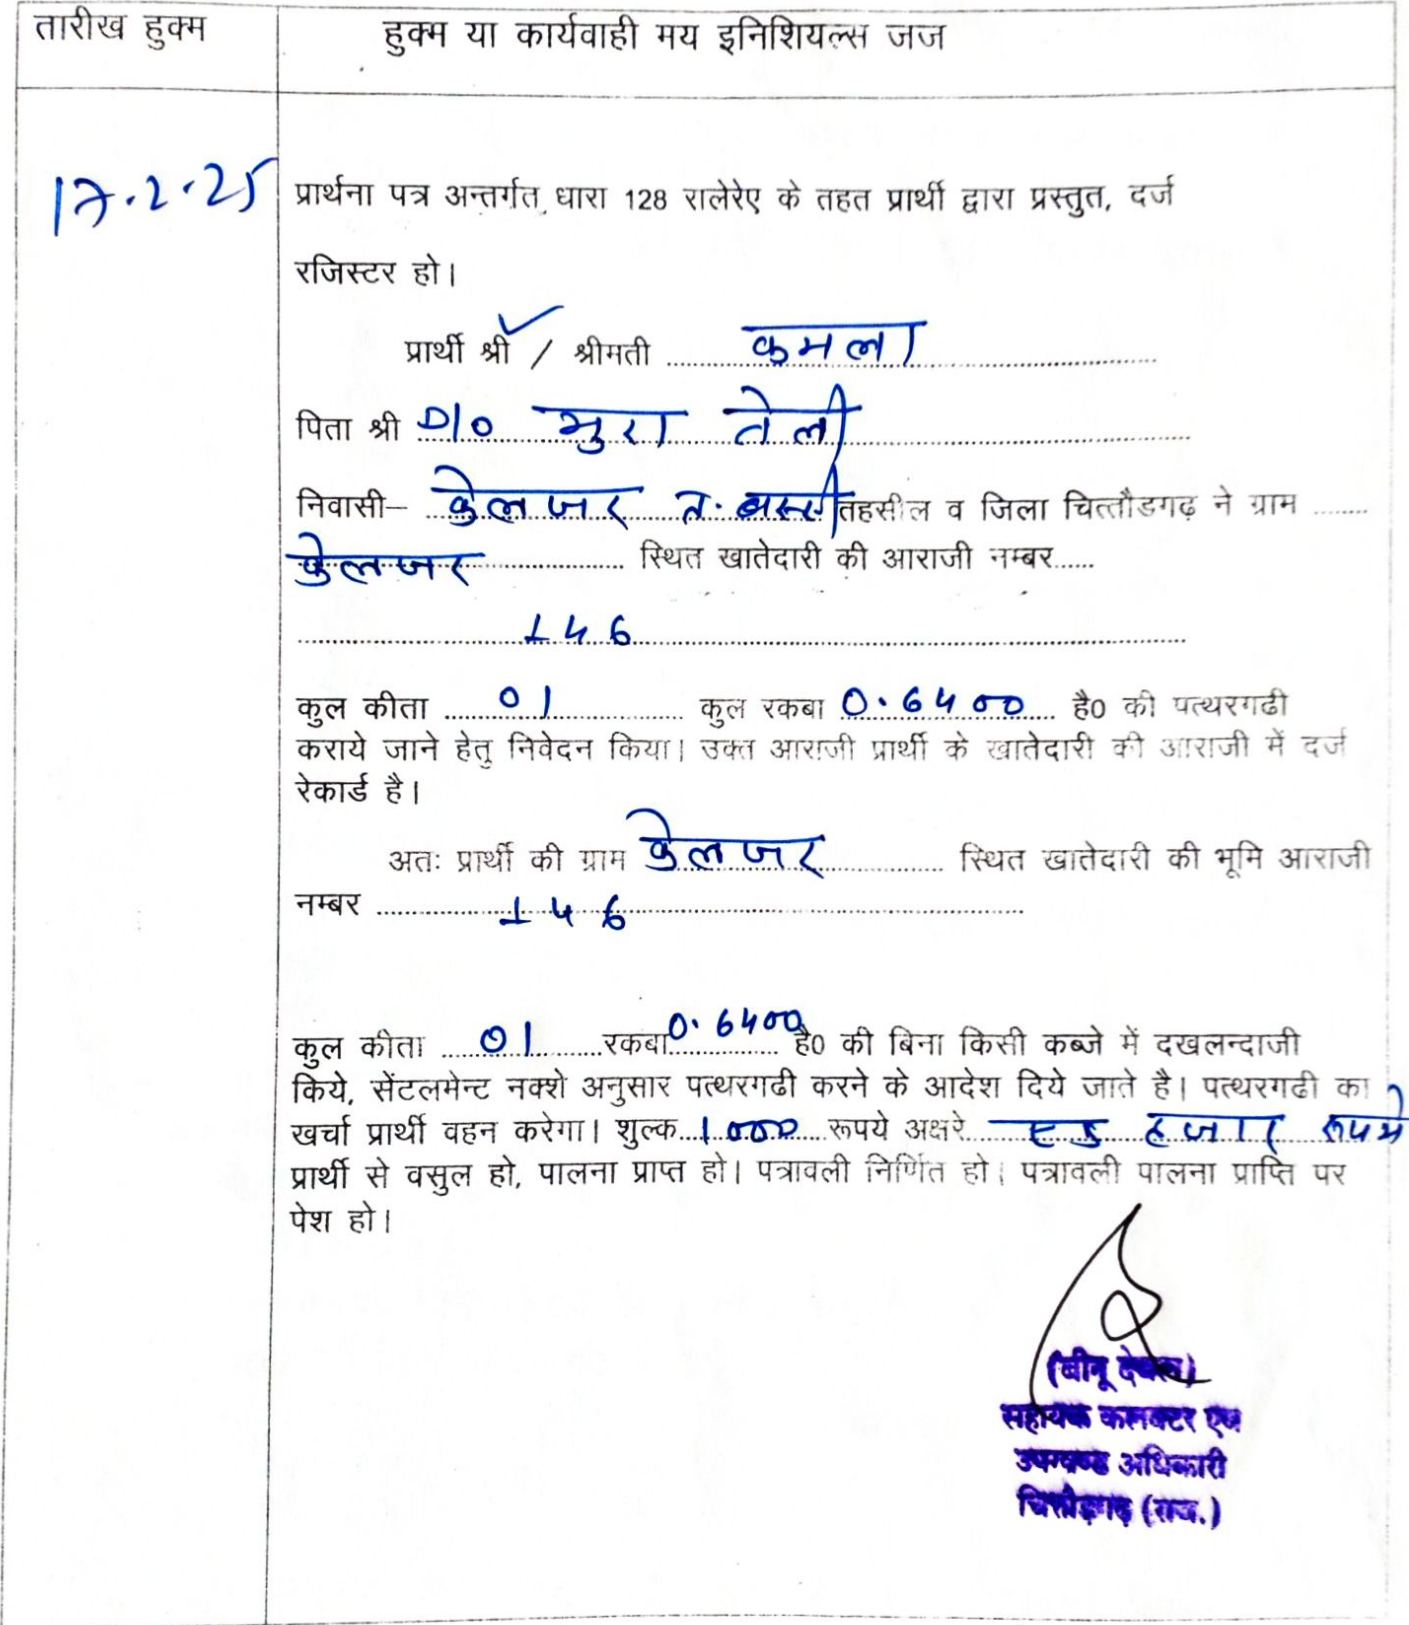 तारीख हुक्म
हुक्म या कार्यवाही मय इनिशियल्स जज
17.2.25
प्रार्थना पत्र अन्तर्गत धारा 128 रालेरेए के तहत प्रार्थी द्वारा प्रस्तुत, दर्ज
रजिस्टर हो।
प्रार्थी श्री / श्रीमती कमला
पिता श्री D/o भुरा तेली
निवासी– केलजर त. बस्सी तहसील व जिला चित्तौडगढ़ ने ग्राम
केलजर स्थित खातेदारी की आराजी नम्बर
146
कुल कीता 01 कुल रकबा 0.6400 है0 की पत्थरगढी
कराये जाने हेतु निवेदन किया। उक्त आराजी प्रार्थी के खातेदारी की आराजी में दर्ज
रेकार्ड है।
अतः प्रार्थी की ग्राम केलजर स्थित खातेदारी की भूमि आराजी
नम्बर 146
कुल कीता 01 रकबा 0.6400 है0 की बिना किसी कब्जे में दखलन्दाजी
किये, सेंटलमेन्ट नक्शे अनुसार पत्थरगढी करने के आदेश दिये जाते है। पत्थरगढी का
खर्चा प्रार्थी वहन करेगा। शुल्क 1000 रूपये अक्षरे एक हजार रूपये
प्रार्थी से वसुल हो, पालना प्राप्त हो। पत्रावली निर्णित हो। पत्रावली पालना प्राप्ति पर
पेश हो।
(बीनू देवल)
सहायक कलक्टर एवं
उपखण्ड अधिकारी
चित्तौड़गढ़ (राज.)